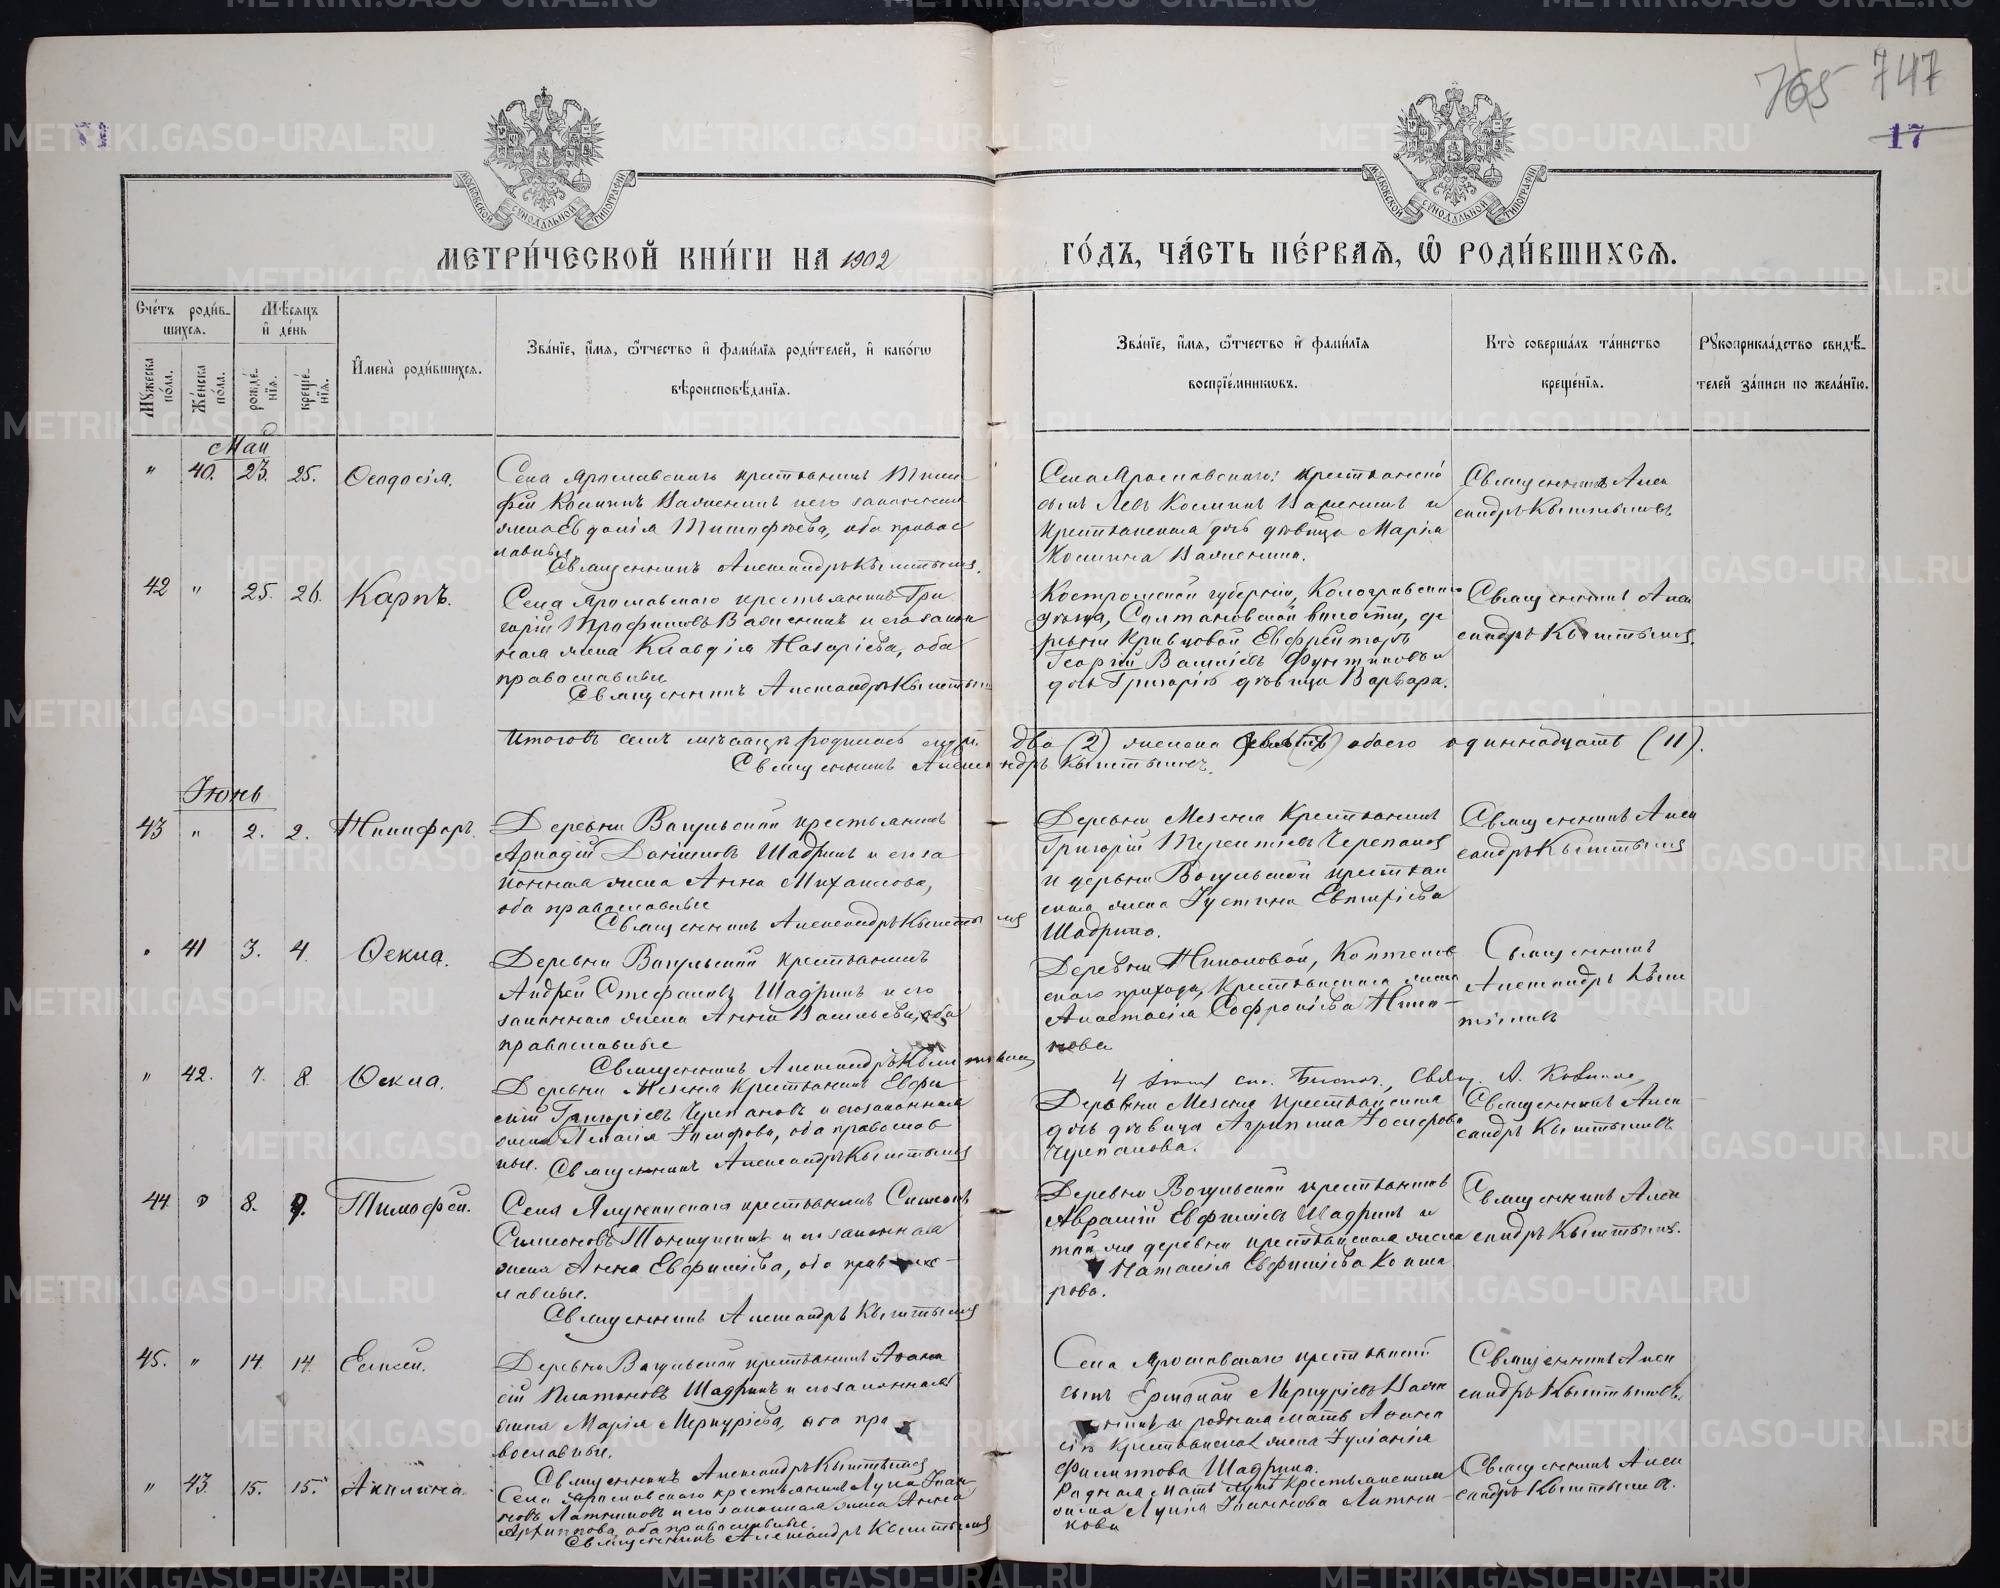 765 747
17
МОСКОВСКОЙ СѴНОДАЛЬНОЙ ТИПОГРАФІИ
МОСКОВСКОЙ СѴНОДАЛЬНОЙ ТИПОГРАФІИ
МЕТРИ́ЧЕСКОЙ КНИ́ГИ НА 1902 ГО́ДЪ, ЧА́СТЬ ПЕ́РВАѦ, Ѡ РОДИ́ВШИХСѦ.
Сче́тъ роди́в-
шихсѧ.
Мѣ́сѧцъ
и де́нь
Мꙋжеска по́ла.
Же́нска по́ла.
рожде́-
нїѧ.
креще́-
нїѧ.
Имена̀ роди́вшихсѧ.
Зва́нїе, и́мѧ, ѻ́тчество и фами́лїѧ роди́телей, и како́гѡ
вѣроисповѣ́данїѧ.
Зва́нїе, и́мѧ, ѻ́тчество и фами́лїѧ
воспрїе́мникѡвъ.
Кто̀ соверша́лъ та́инство
креще́нїѧ.
Рꙋкоприкла́дство свидѣ́-
телей за́писи по жела́нїю.
Май
" 40. 23. 25. Ѳеодосія.
Села Ярославскаго крестьянинъ
его законная
жена Евдокія Тимофѣева, оба правос
лавные
Священникъ Александръ Кыштымов.
Села Ярославскаго крестьянскій
сынъ Левъ Косминъ Важенинъ и
крестьянская дочь дѣвица Марія
Космина Важенина.
Священникъ Алек
сандръ Кыштымовъ
42 " 25. 26. Карпъ.
Села Ярославскаго крестьянинъ Гри
горій Трофимовъ Важенинъ и его закон
ная жена Клавдія Назаріева, оба
православные
Священникъ Александръ Кыштым
Костромской губерніи, Кологривскаго
уѣзда, Солтановской волости, де
ревни Кривцовой Евфрейторъ
Георгій Васильевъ и
дочь Григорія дѣвица Варвара.
Священникъ Алек
сандръ Кыштымов.
Итого въ семъ мѣсяцѣ родилось два (2) женска обоего одиннадцать (11).
Священникъ Александръ Кыштымов.
Іюнь
43 " 2. 2. Никифоръ.
Деревни Вогульской крестьянинъ
Аркадій Даніиловъ Шадринъ и его за
конная жена Анна Михаилова,
оба православные
Священникъ Александръ Кыштымов
Деревни Мезенка крестьянинъ
Григорій Терентіевъ Черепанов
и деревни Вогульской крестьян
ская жена Іустина Евтихіева
Шадрина.
Священникъ Алек
сандръ Кыштымов
" 41 3. 4. Ѳекла.
Деревни Вогульской крестьянинъ
Андрей Стефановъ Шадринъ и его
законная жена Анна Васильева, оба
православные
Священникъ Александръ Кыштымов
Деревни Никоновой,
скаго прихода, крестьянская жена
Анастасія Софроніева Нико-
нова
Священникъ
Александръ Кыш
тымовъ
" 42. 7. 8. Ѳекла.
Деревни Мезенка крестьянинъ Евфи
мій Григоріевъ Черепановъ и его законная
жена Пелагія оба православ
ные. Священникъ Александръ Кыштымов
Деревни Мезенка крестьянская
дочь дѣвица Агрипина
Черепанова.
Священникъ Алек
сандръ Кыштымовъ
44 " 8. 9. Тимоѳей.
крестьянинъ Симеонъ
Симеоновъ и его законная
жена Анна Евфиміева, оба правос-
лавные.
Священникъ Александръ Кыштымов
Деревни Вогульской крестьянинъ
Авраамій Евфиміевъ Шадринъ и
той же деревни крестьянская жена
Наталія Евфиміева
рова.
Священникъ Алек
сандръ Кыштымов.
45. " 14. 14. Елисей.
Деревни Вогульской крестьянинъ Аѳана
сій Платоновъ Шадринъ и его законная
жена Марія Меркуріева, оба пра
вославные.
Священникъ Александръ Кыштымов
Села Ярославскаго крестьянскій
сынъ Ермолай Меркуріевъ Важе
нинъ и родная мать Аѳана
сія крестьянская жена Іуліанія
Филиппова Шадрина.
Священникъ Алек
сандръ Кыштымовъ.
" 43. 15. 15. Акилина.
Села Ярославскаго крестьянинъ Лука Іоан
новъ и его законная жена Анна
Архиппова, оба православные.
Священникъ Александръ Кыштымов
Родная мать крестьянская
жена Іоаннова
кова
Священникъ Алек
сандръ Кыштымов.